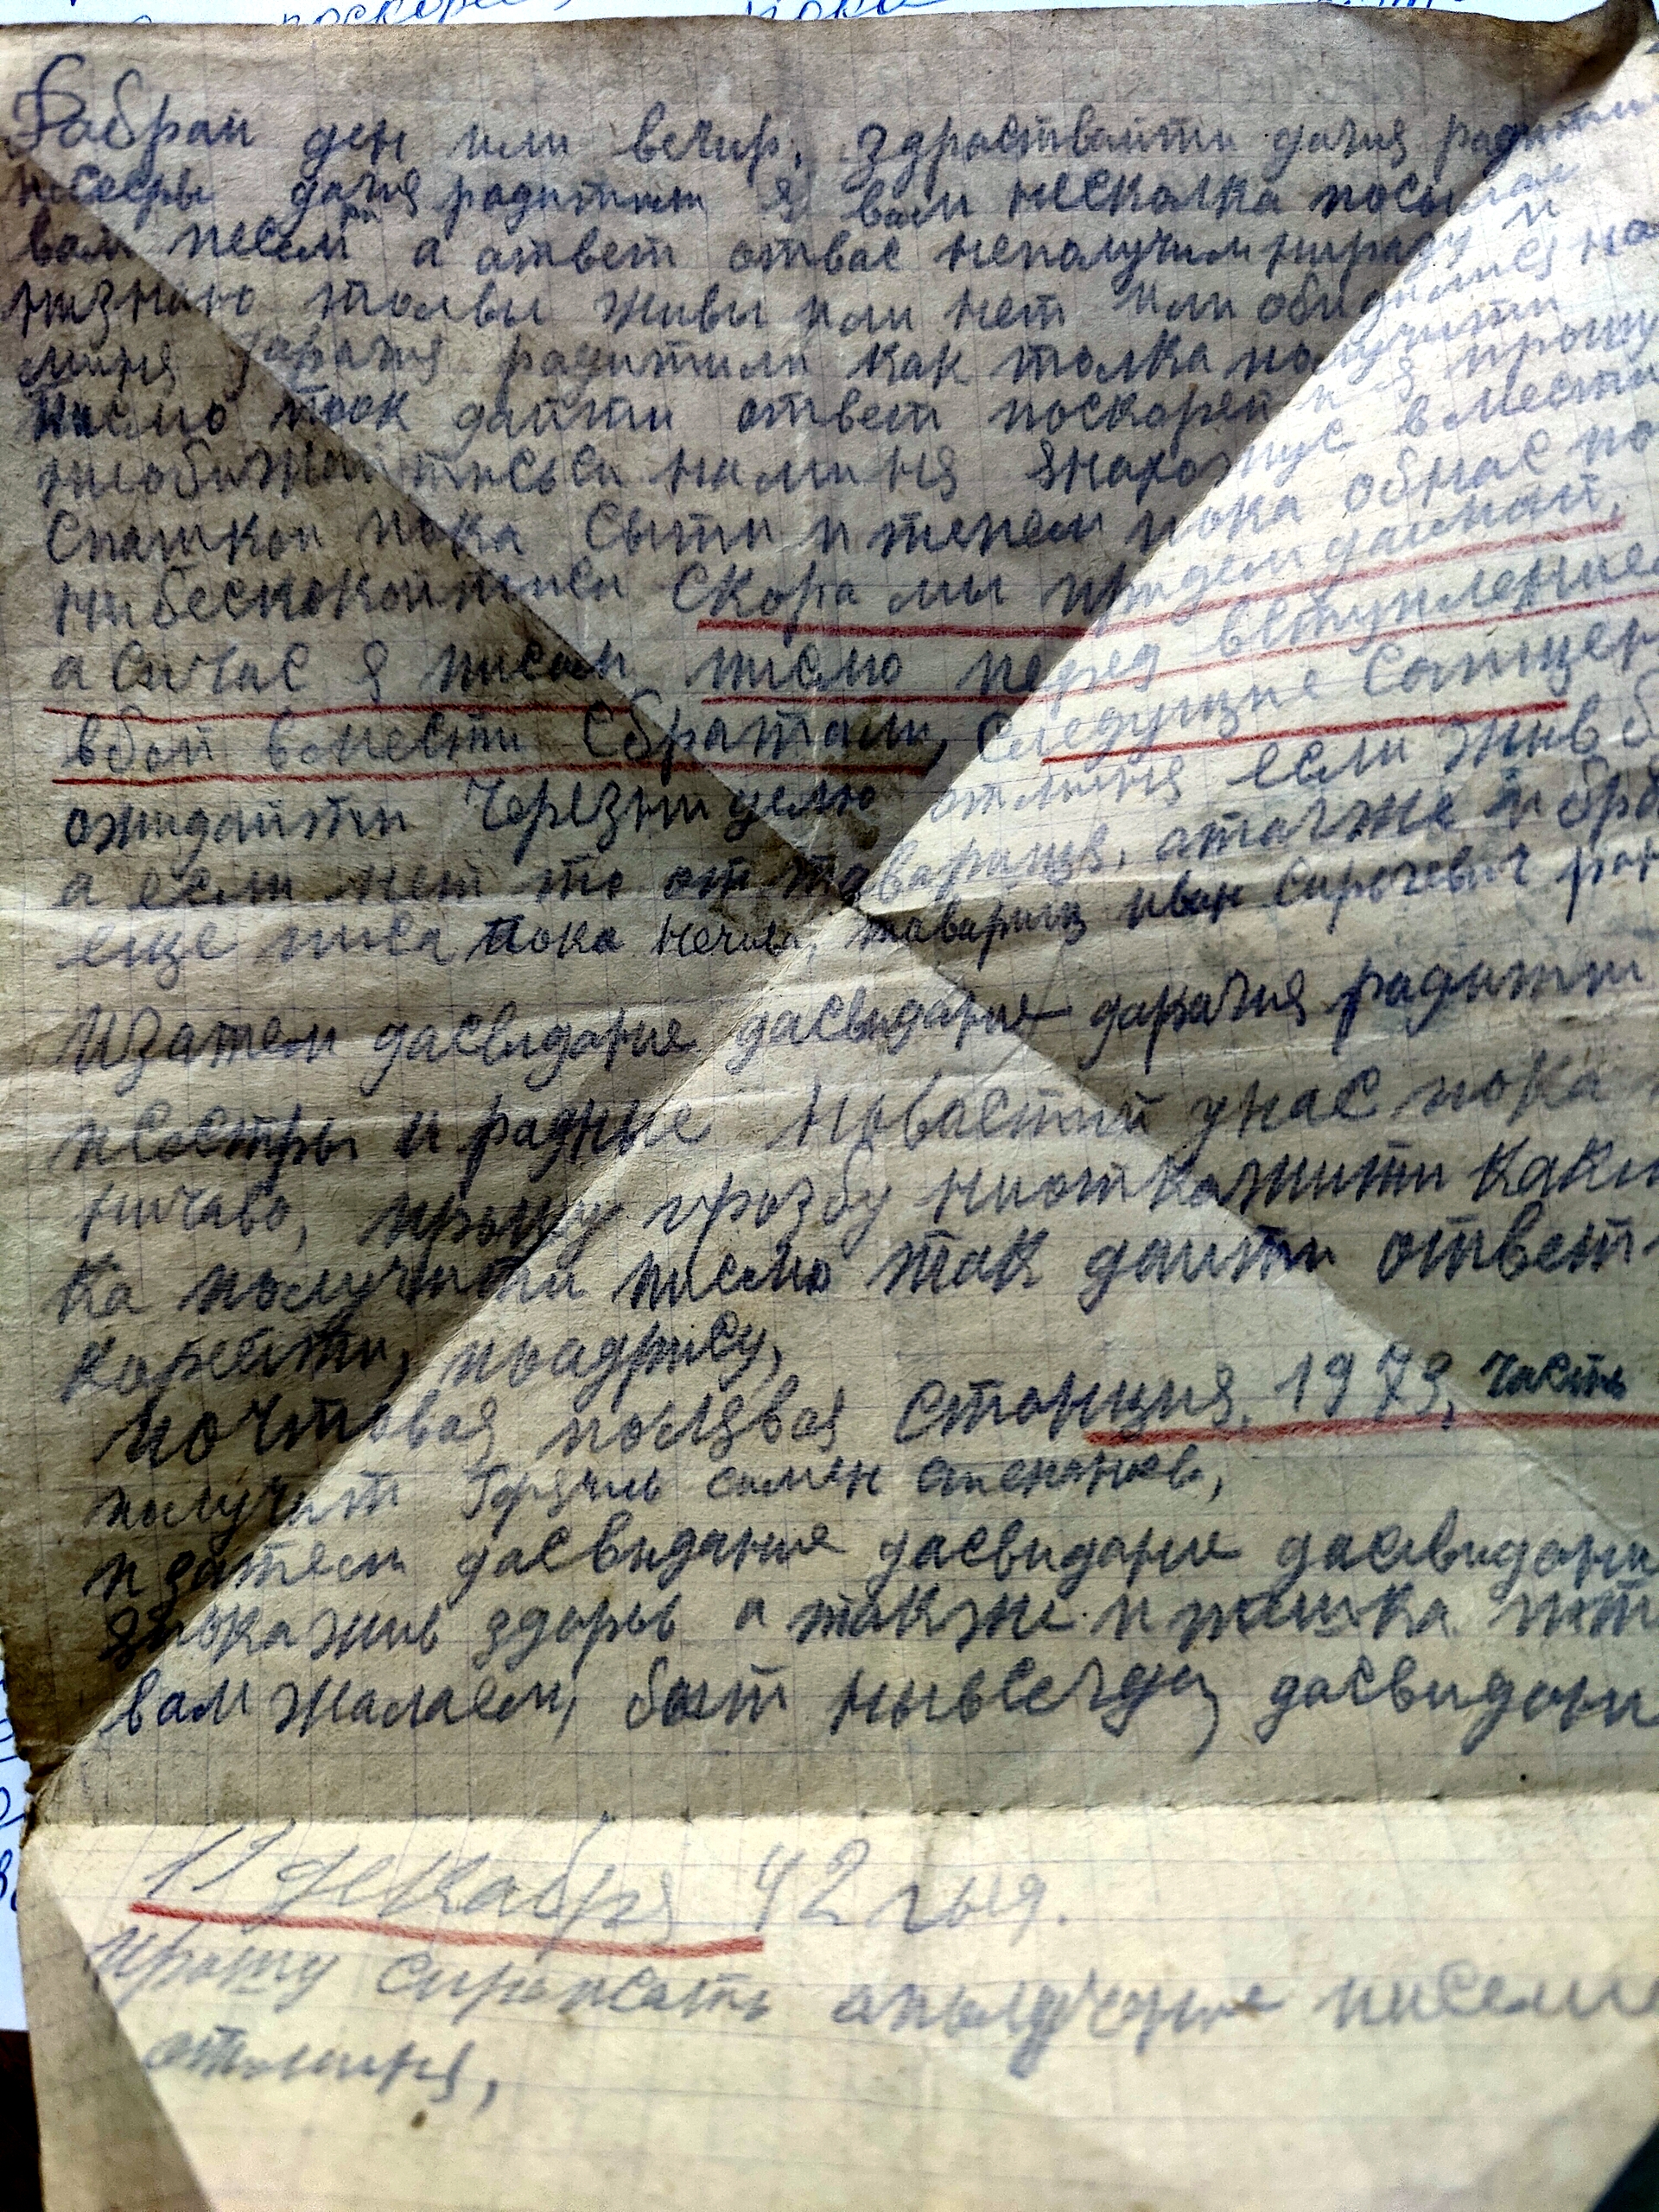 Дабрай ден или вечир, здраствайти дагия радители
исесры дагия радитили я вам несколка посылал
вам песем а ответ отвас неполучил ниразу и
низнаю толвы живы или нет или обидилися на
миня дарагия радитили как толка получити
писмо так дайти ответ поскорей и я прошу
необижайтисьси наминя янахожус вместе
Спашкой пока сыти и тепем пока обнас по
нибескокойтиси скора мы придем дамнай,
а сичас я писал писмо перед вступлением
вбой вмести сбратами, следущие
ожидайти черезниделю отминя если жив б
а если нет то от таварища, атагже и бра
еще писа пока нечива, таварищ иван
Изатем дасвидание дасвидание дарагия радити
исестры и радные новастий унас пока
ничаво, прошу прозбу ниоткажити каки
ка получити писмо так дайти ответ
корести, поадрису,
почтовая полявая станция, 1973, часть
получит семен
и затем дасвидание дасвидание дасвидани
япока жив здоров а также и пашка
вам жалаем, быт нывсегда, дасвидани
11 декабря 42 года.
прошу аполучение писеме
отминя,